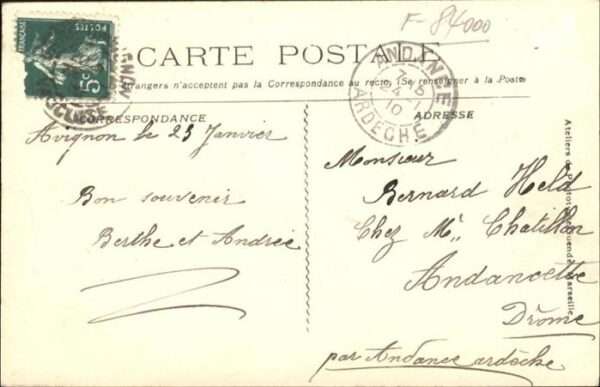 F-84000
CARTE POSTALE
5c
POSTES
ANDANCE
24 - 1
10
ARDECHE
étrangers n'acceptent pas la Correspondance au recto. (Se renseigner à la Poste)
CORRESPONDANCE
Avignon le 23 Janvier
Bon souvenir
Berthe et Andrée
ADRESSE
Monsieur
Bernard Held
Chez Mr Chatillon
Andancette
Drôme
par Andance ardèche
Ateliers de